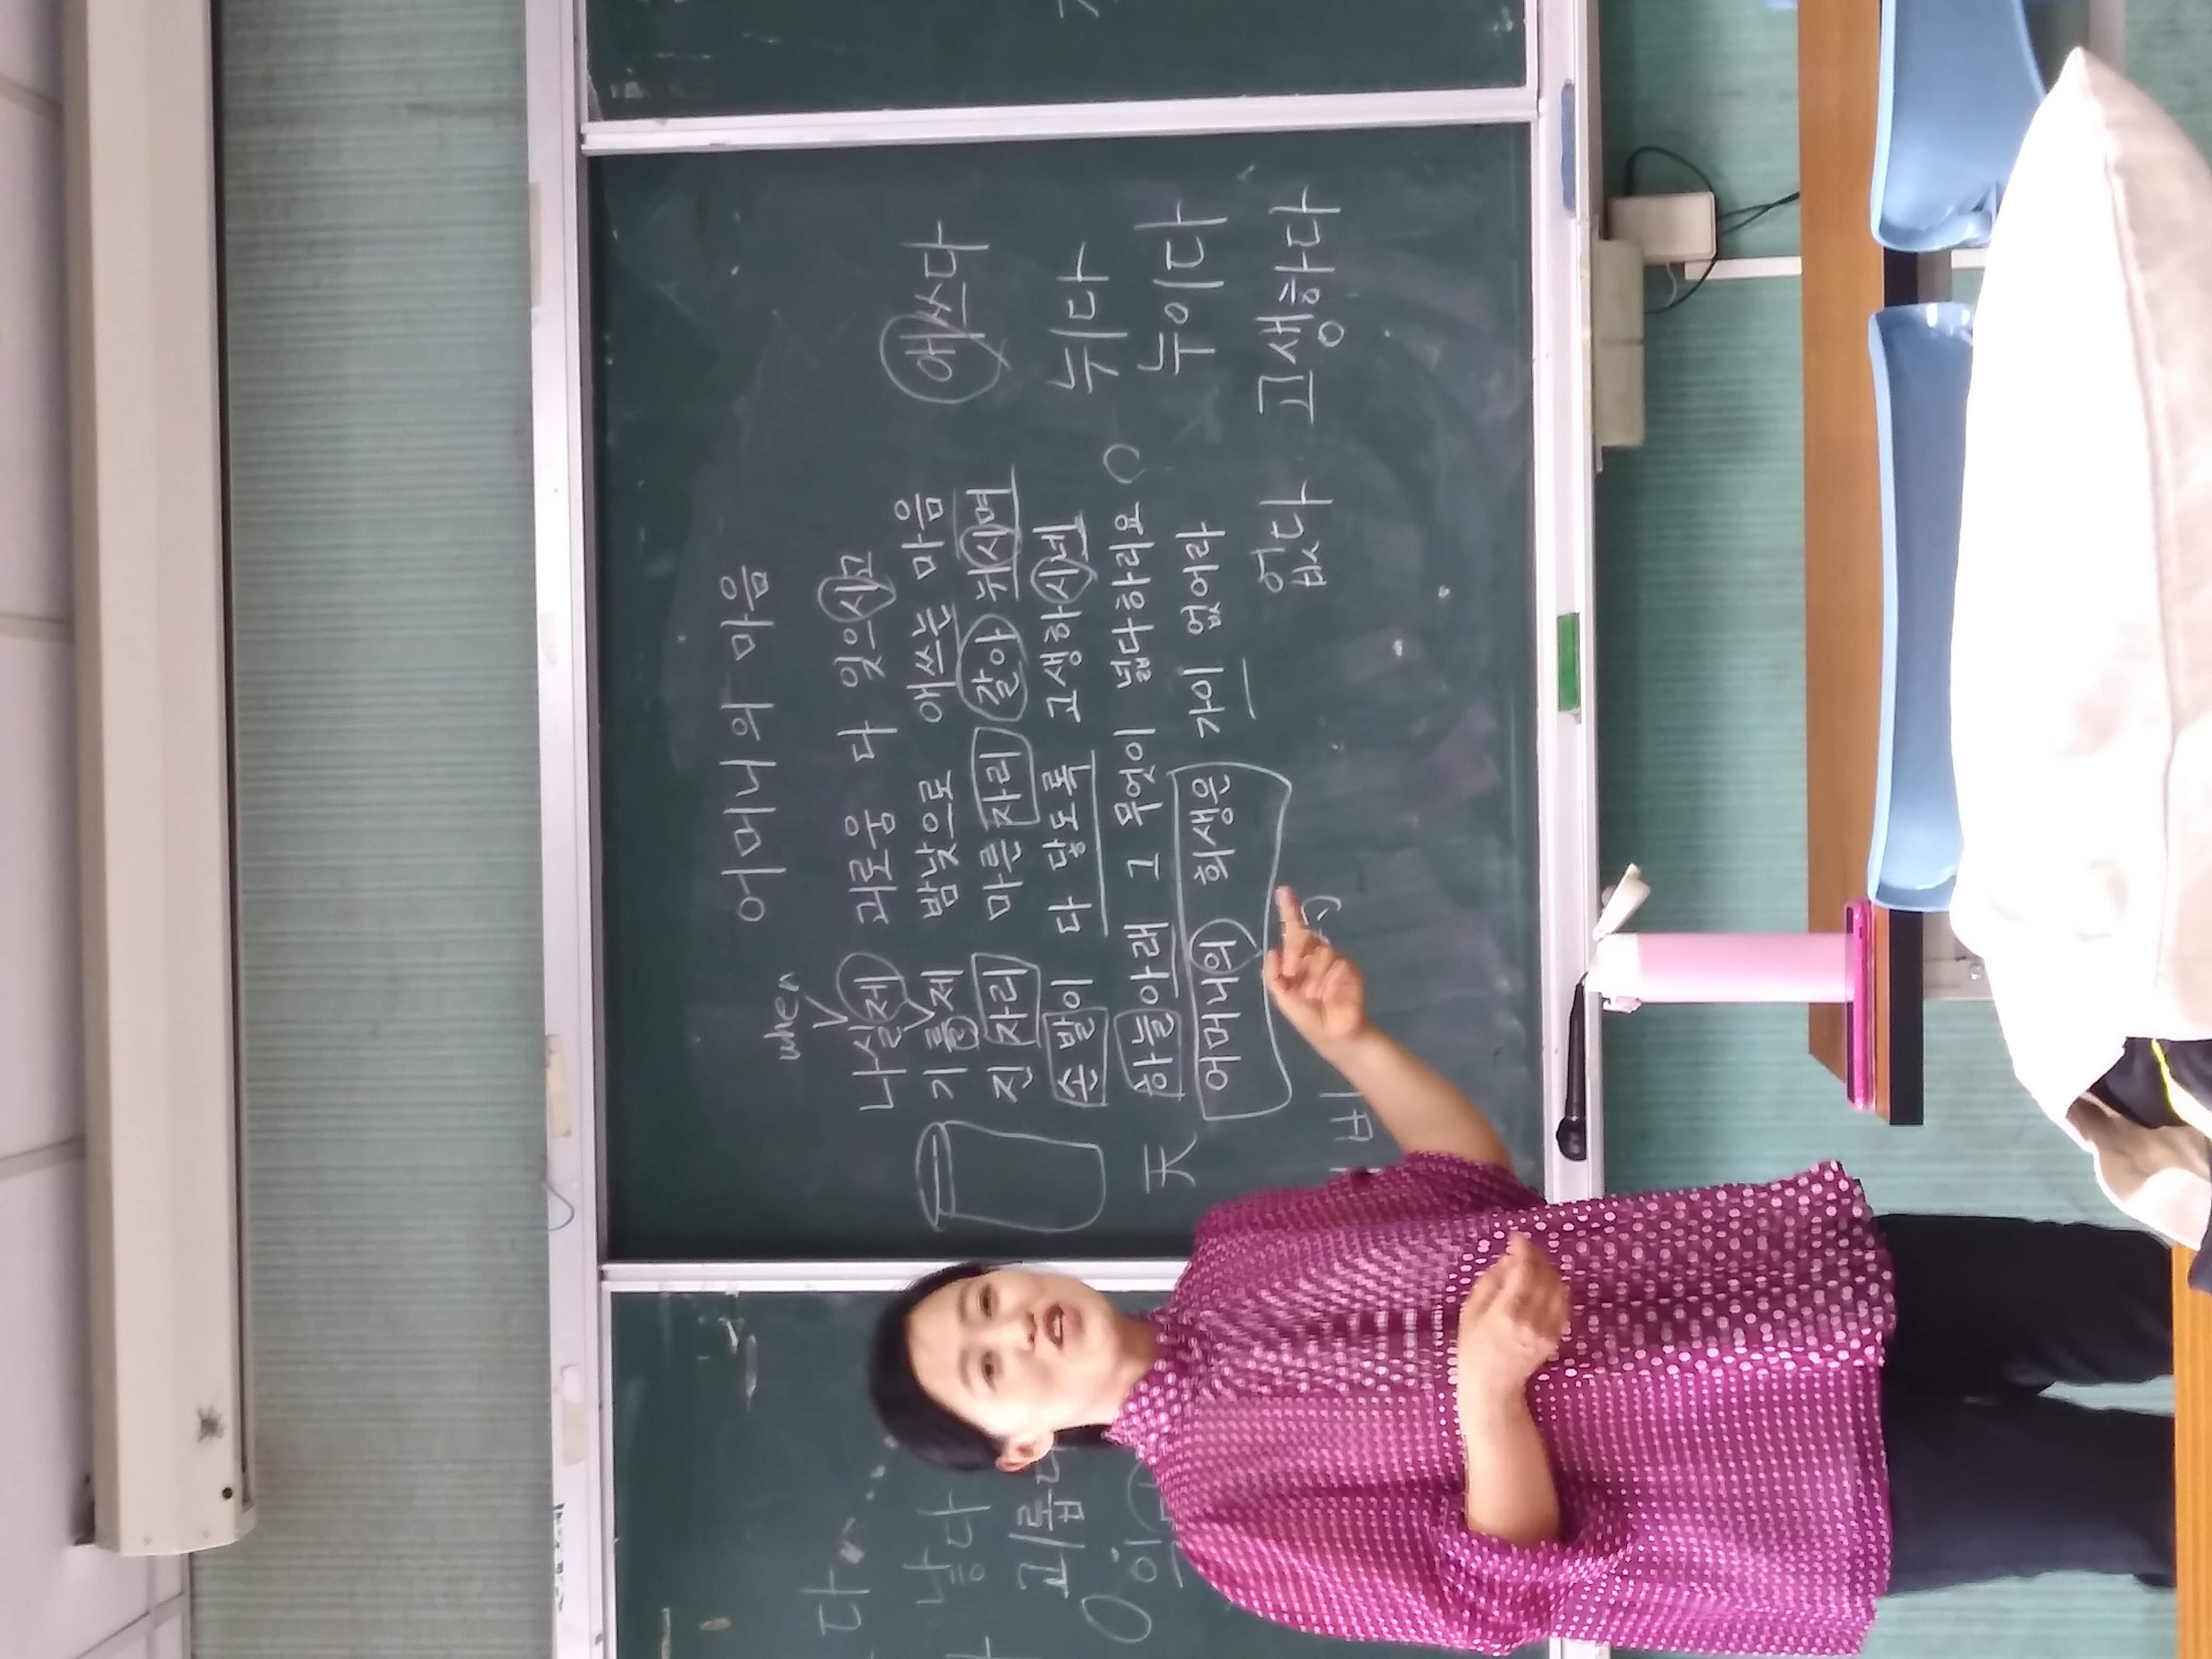 어머니의 마음
when
나실제 괴로움 다 잊으시고
기를제 밤낮으로 애쓰는 마음
진 자리 마른 자리 갈아 뉘시며
손발이 다 닿도록 고생하시넨
하늘아래 그 무엇이 넓다하리요
어머니의 희생은 가이 없어라
天
애쓰다
뉘다
누이다
없다 고생하다
다
낳다
괴롭다